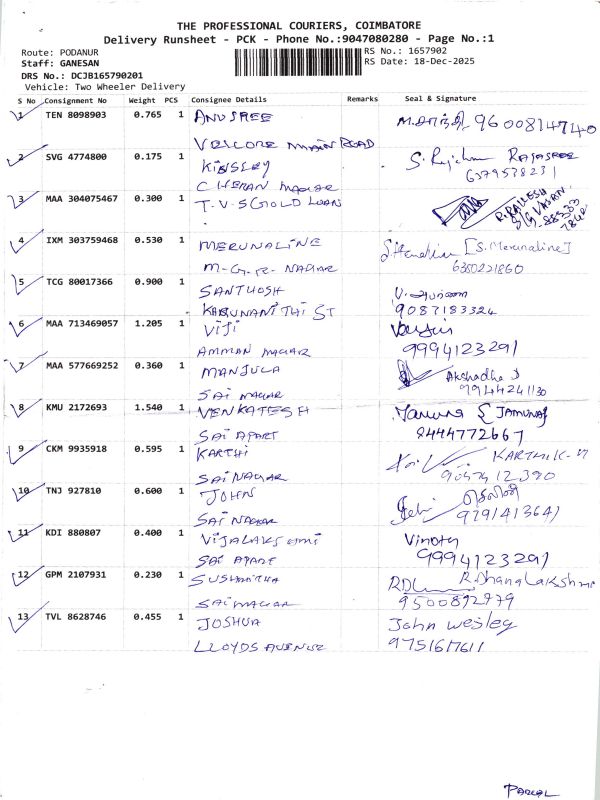 THE PROFESSIONAL COURIERS, COIMBATORE
Delivery Runsheet - PCK - Phone No.:9047080280 - Page No.:1
Route: PODANUR
RS No.: 1657902
Staff: GANESAN
RS Date: 18-Dec-2025
DRS No.: DCJB165790201
Vehicle: Two Wheeler Delivery
S No Consignment No Weight PCS Consignee Details Remarks Seal & Signature
1 TEN 8098903 0.765 1 ANUSREE 9600814740
VELLORE MAIN ROAD
2 SVG 4774800 0.175 1 KINGSLEY RAJASREE
CHERAN NAGAR 6379538231
3 MAA 304075467 0.300 1 T.V.S GOLD LOAN
4 IXM 303759468 0.530 1 MERUNALINE [S. Merunaline]
M.G.R. NAGAR 6380221860
5 TCG 80017366 0.900 1 SANTHOSH
KARUNANITHI ST 9087183324
6 MAA 713469057 1.205 1 VIJI
AMMAN NAGAR 9994123291
7 MAA 577669252 0.360 1 MANJULA Akshadha
SAI NAGAR 9944241130
8 KMU 2172693 1.540 1 VENKATESH
SAI APART 8444772667
9 CKM 9935918 0.595 1 KARTHI KARTHIK-M
SAI NAGAR
10 TNJ 927810 0.600 1 JOHN
SAI NAGAR 9791413641
11 KDI 880807 0.400 1 VIJALAKSHMI Vinoth
SAI APART 9994123291
12 GPM 2107931 0.230 1 SUSHMITHA R. Dhanalakshmi
SAI NAGAR 9500892979
13 TVL 8628746 0.455 1 JOSHUA John Wesley
LLOYDS AVENUE 9751617611
PARCEL